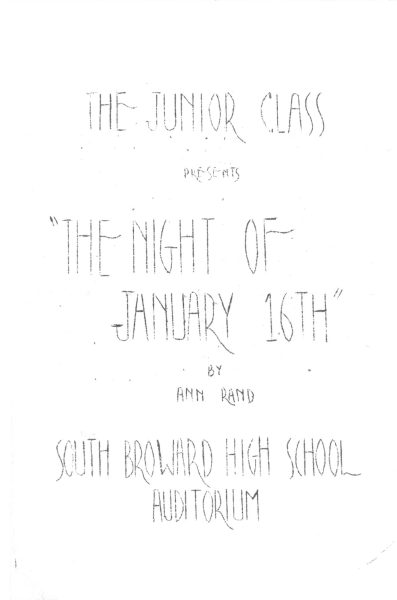 THE JUNIOR CLASS
PRESENTS
"THE NIGHT OF
JANUARY 16TH"
BY
ANN RAND
SOUTH BROWARD HIGH SCHOOL
AUDITORIUM